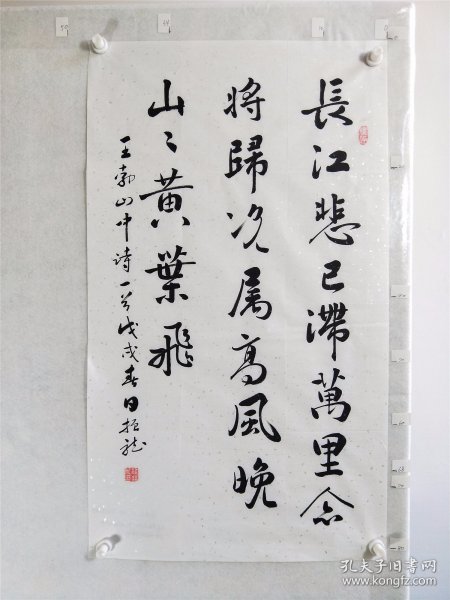 長江悲已滯萬里念
將歸况属高風晚
山〻黄葉飛
王勃山中诗一首戊戌春日振龙
孔夫子旧书网
www.kongfz.com